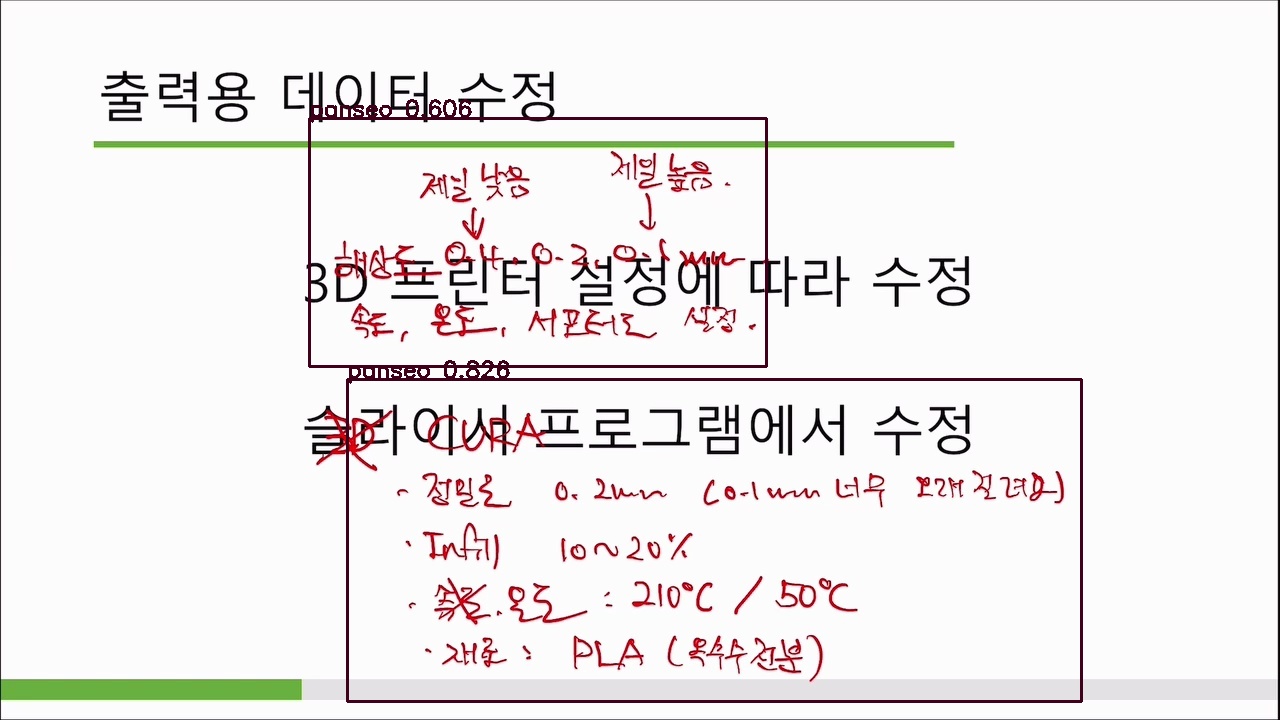 출력용 데이터 수정
panseo 0.606
제일 낮음 제일 높음.
↓ ↓
해상도 0.4, 0.2, 0.1mm
3D 프린터 설정에 따라 수정
속도, 온도, 서포터도 설정.
panseo 0.826
슬라이서 프로그램에서 수정
CURA
· 정밀도 0.2mm (0.1mm 너무 오래걸려요)
· Infill 10~20%
· 온도 : 210℃ / 50℃
· 재료 : PLA (옥수수전분)